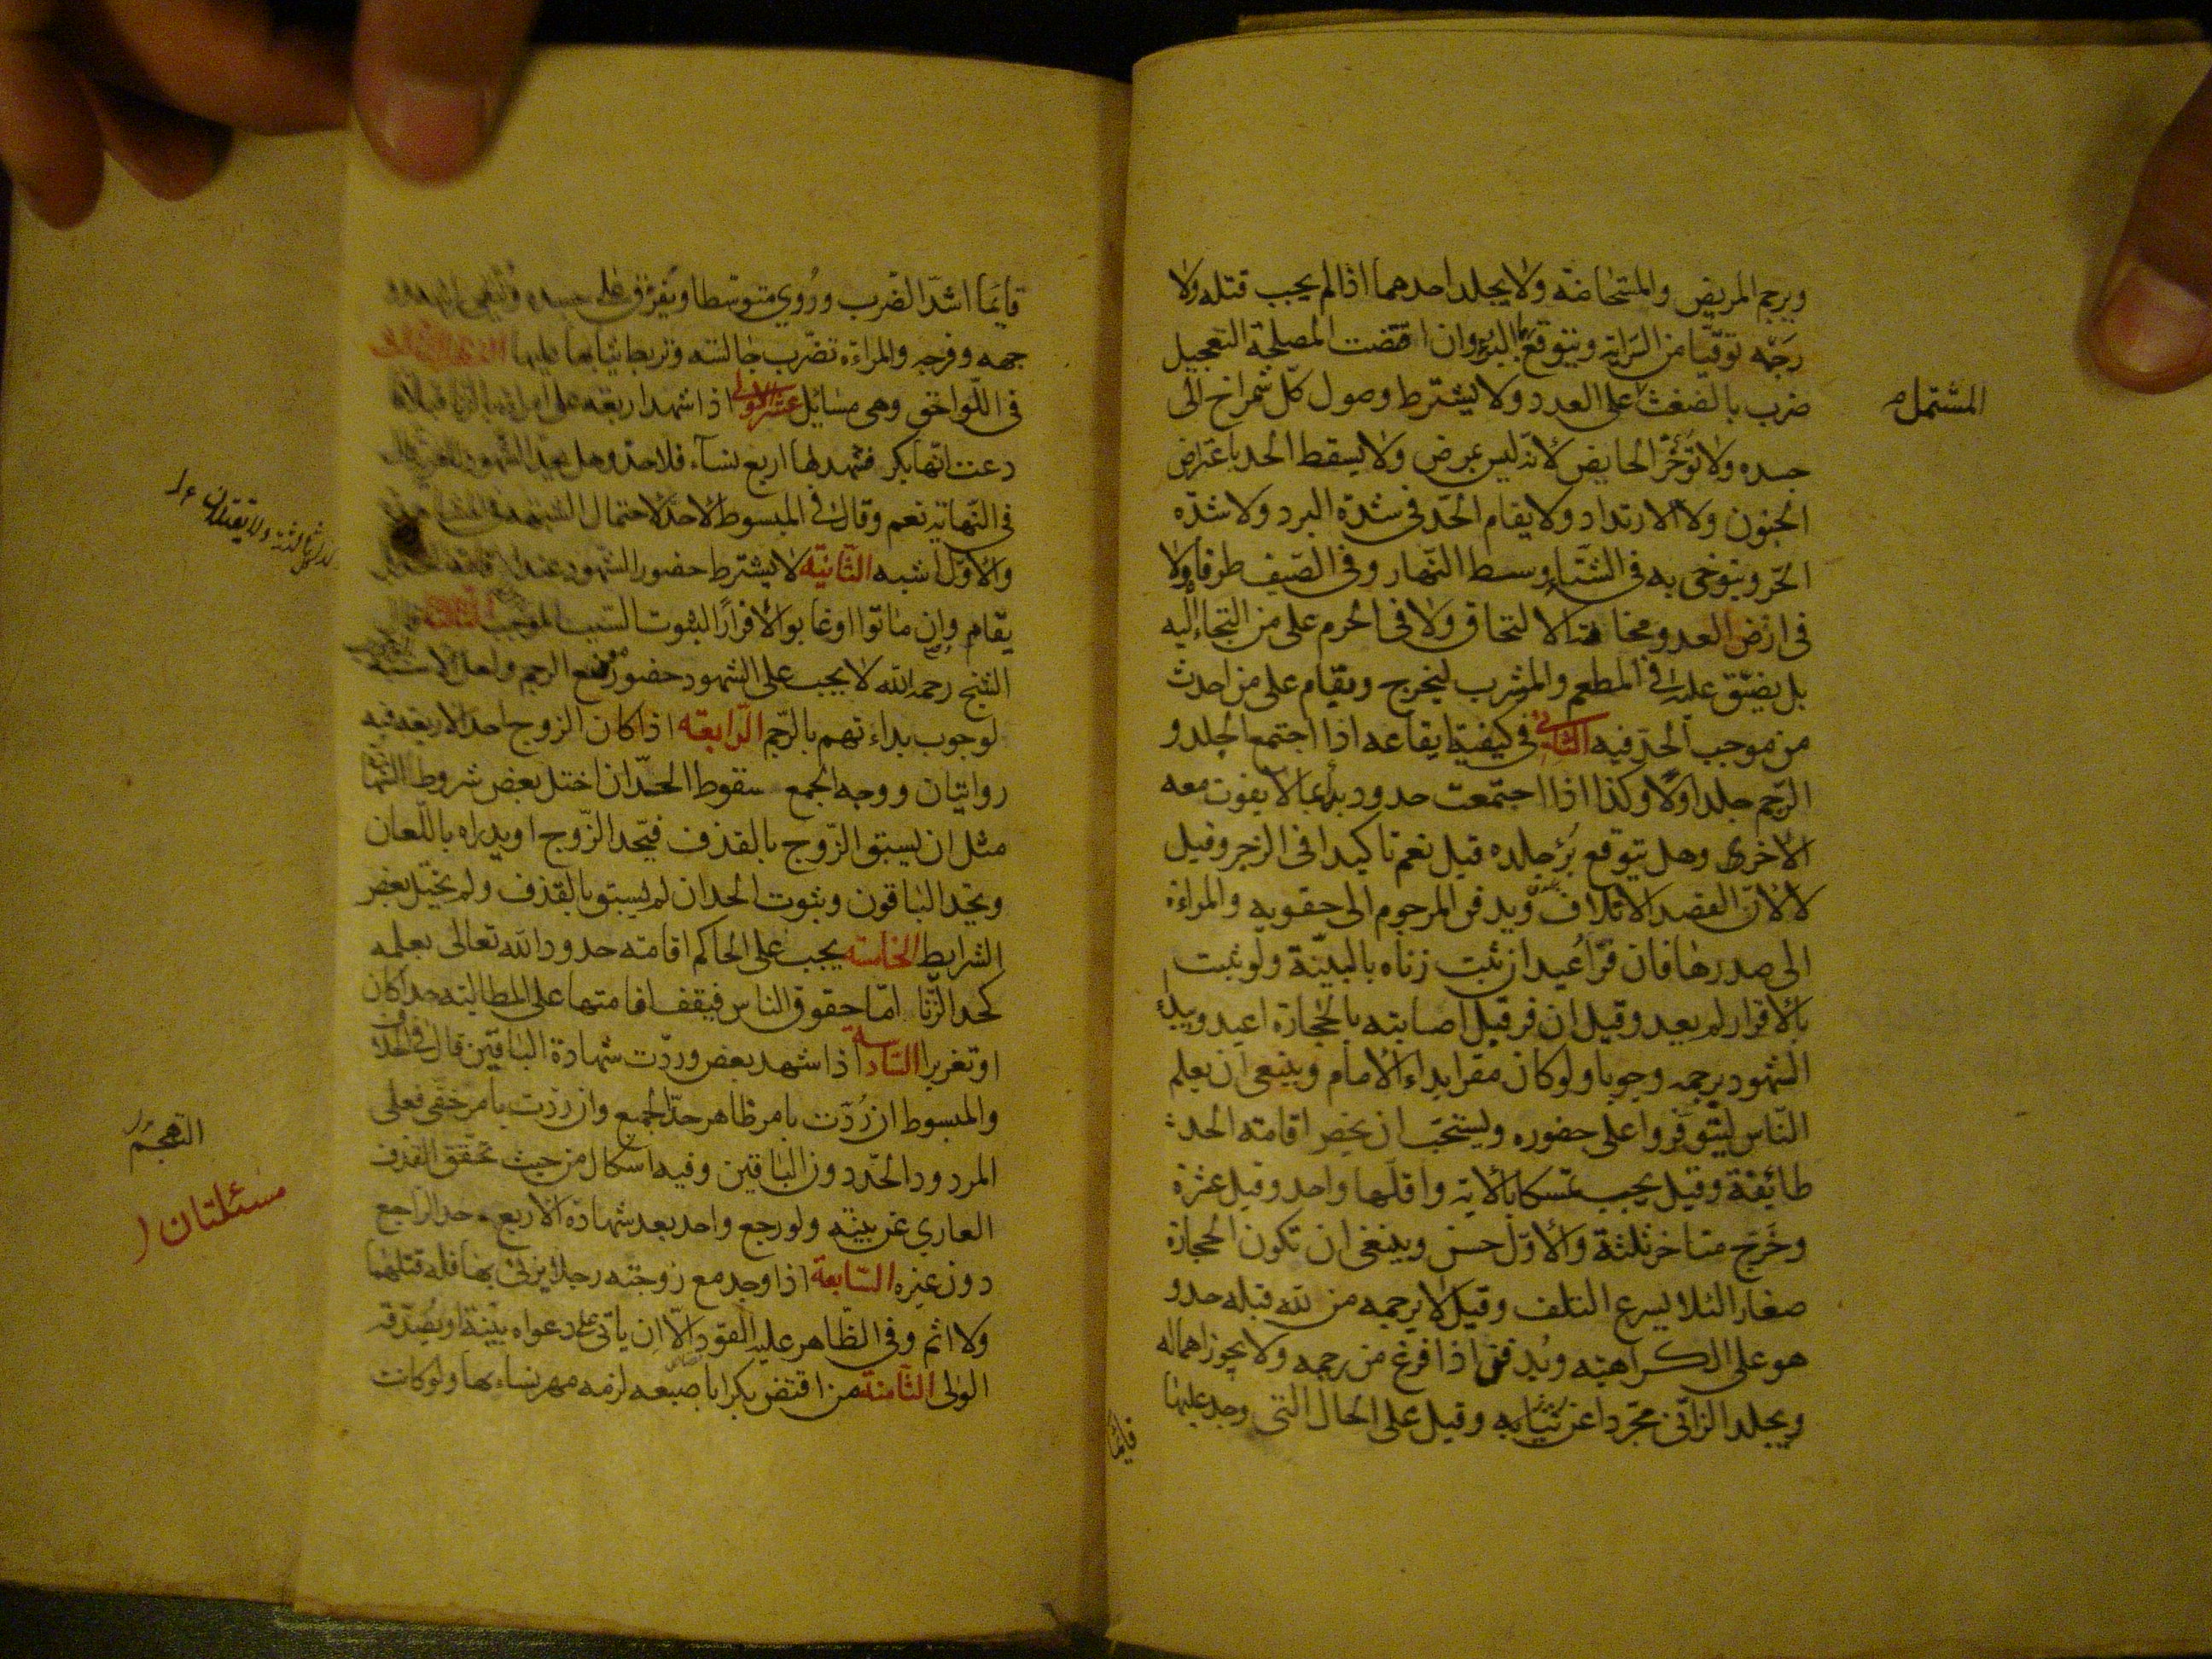 ويرجم المريض والمستحاضة ولا يجلد احدهما اذا لم يجب قتله ولا
رجمه توقيا من السراية ويتوقع بهما البرؤ وان اقتضت المصلحة التعجيل
ضرب بالضغث على العدد ولا يشترط وصول كل شمراخ الى
المشتمل
جسده ولا تؤخر الحايض لانه ليس بمرض ولا يسقط الحد باعتراض
الجنون ولا الارتداد ولا يقام الحد في شدة البرد ولا شدة
الحر ويتوخى به في الشتاء وسط النهار وفي الصيف طرفاه ولا
في ارض العدو مخافة الالتحاق ولا في الحرم على من التجاء اليه
بل يضيق عليه في المطعم والمشرب ليخرج ويقام على من احدث
من موجب الحد فيه الثاني في كيفية ايقاعه اذا اجتمع الجلد و
الرجم جلد اولا وكذا اذا اجتمعت حدود بدأ بما لا يفوت معه
الاخرى وهل يتوقع برؤ جلده قيل نعم تاكيدا في الزجر وقيل
لا لان القصد الاتلاف ويدفن المرجوم الى حقويه والمراءة
الى صدرها فان فر اعيد ان ثبت زناه بالبينة ولو ثبت
بالاقرار لم يعد وقيل ان فر قبل اصابته بالحجارة اعيد ويبدأ
الشهود برجمه وجوبا ولو كان مقرا بداء الامام وينبغي ان يعلم
الناس ليتوفروا على حضوره ويستحب ان يحضر اقامة الحد
طائفة وقيل يجب تمسكا بالاية واقلها واحد وقيل عشرة
وخرج متاخر ثلثة والاول حسن وينبغي ان تكون الحجارة
صغارا لئلا يسرع التلف وقيل لا يرجمه من لله قبله حد و
هو على الكراهية ويدفن اذا فرغ من رجمه ولا يجوز اهماله
ويجلد الزاني مجردا عن ثيابه وقيل على الحال التي وجد عليها
قايما
قايما اشد الضرب وروي متوسطا ويفرق على جسده ويتقى
جهه وفرجه والمراءة تضرب جالسة وتربط ثيابها عليها النظر الثالث
في اللواحق وهي مسائل عشر الاولى اذا شهد اربعة على امراءة بالزنا قبلا فا
دعت انها بكر فشهد لها اربع نساء فلا حد وهل يحد الشهود للفرية قال
في النهاية نعم وقال في المبسوط لا حد لاحتمال الشبهة في المشاهدة
والاول اشبه الثانية لا يشترط حضور الشهود عند اقامة الحد بل
يقام وان ماتوا او غابوا لا فرارا لثبوت السبب الموجب الثالثة قال
الشيخ رحمه الله لا يجب على الشهود حضور موضع الرجم ولعل الاشبه
لوجوب بداءتهم بالرجم الرابعة اذا كان الزوج احد الاربعة فيه
روايتان ووجه الجمع سقوط الحد ان اختل بعض شروط الشهادة
مثل ان يسبق الزوج بالقذف فيحد الزوج او يدراه باللعان
ويحد الباقون وثبوت الحد ان لم يسبق بالقذف ولم يختل بعض
الشرايط الخامسة يجب على الحاكم اقامة حدود الله تعالى بعلمه
كحد الزنا اما حقوق الناس فيقف اقامتها على المطالبة حدا كان
او تعزيرا السادسة اذا شهد بعض وردت شهادة الباقين قال في الخلاف
والمبسوط ان ردت بامر ظاهر حد الجميع وان ردت بامر خفي فعلى
المردود الحد دون الباقين وفيه اشكال من حيث تحقق القذف
العاري عن بينة ولو رجع واحد بعد شهادة الاربع حد الراجع
دون غيره السابعة اذا وجد مع زوجته رجلا يزني بها فله قتلهما
ولا اثم وفي الظاهر عليه القود الا ان ياتي على دعواه ببينة او يصدقه
الولي الثامنة من اقتض بكرا باصبعه لزمه مهر نساءها ولو كانت
مسئلتان